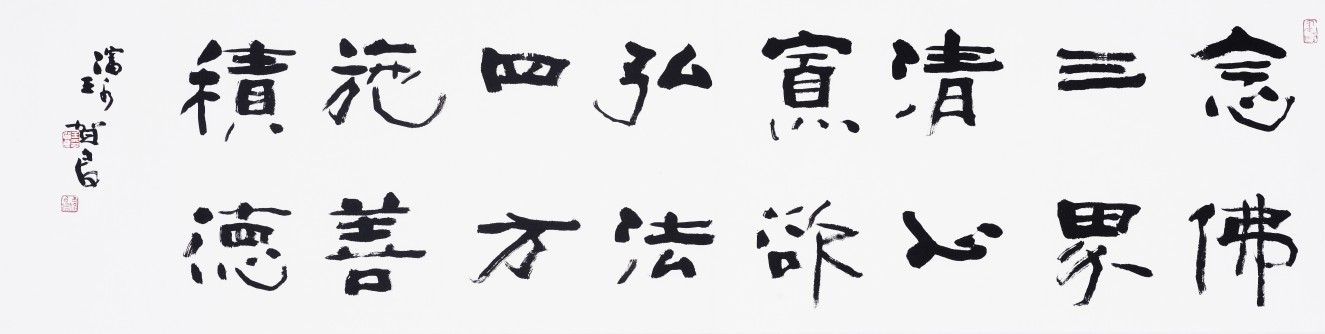 念佛
三界
清心
寡欲
弘法
四方
施善
積德